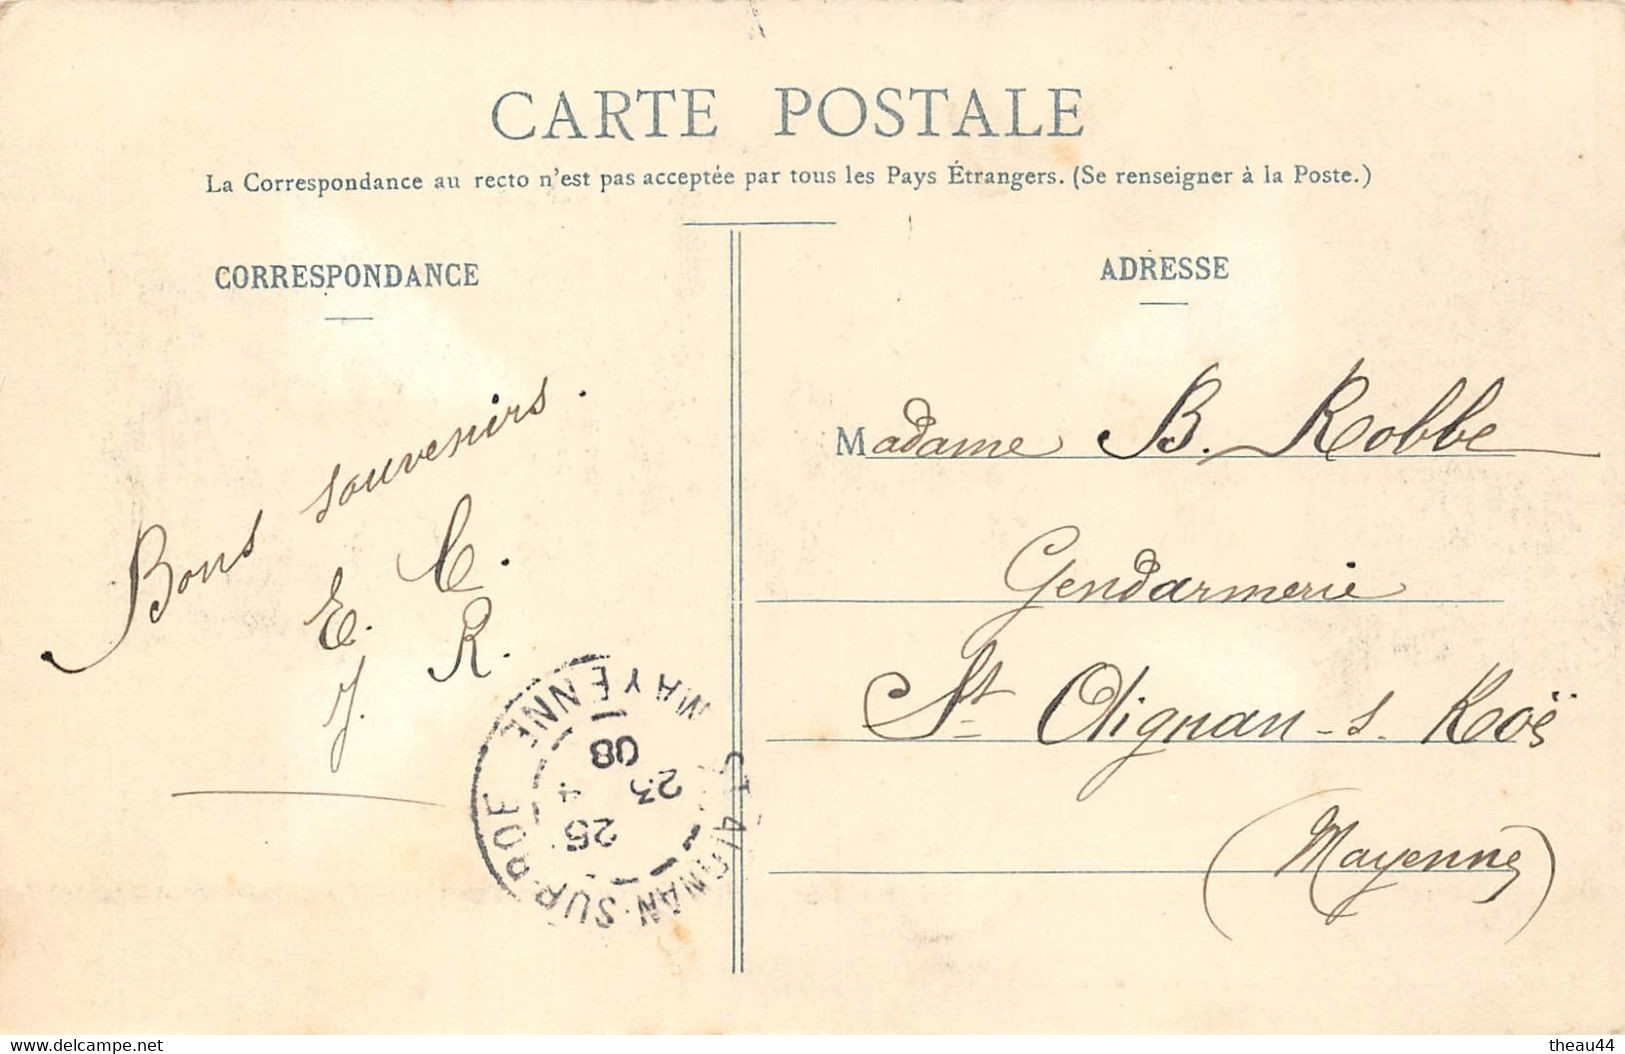 CARTE POSTALE
La Correspondance au recto n'est pas acceptée par tous les Pays Étrangers. (Se renseigner à la Poste.)
CORRESPONDANCE
Bons souvenirs.
E. C.
J. R.
ADRESSE
Madame B. Robbe
Gendarmerie
St Aignan-s. Roë
(Mayenne)
ST AIGNAN-SUR-ROE MAYENNE
23
4
08
www.delcampe.net
theau44